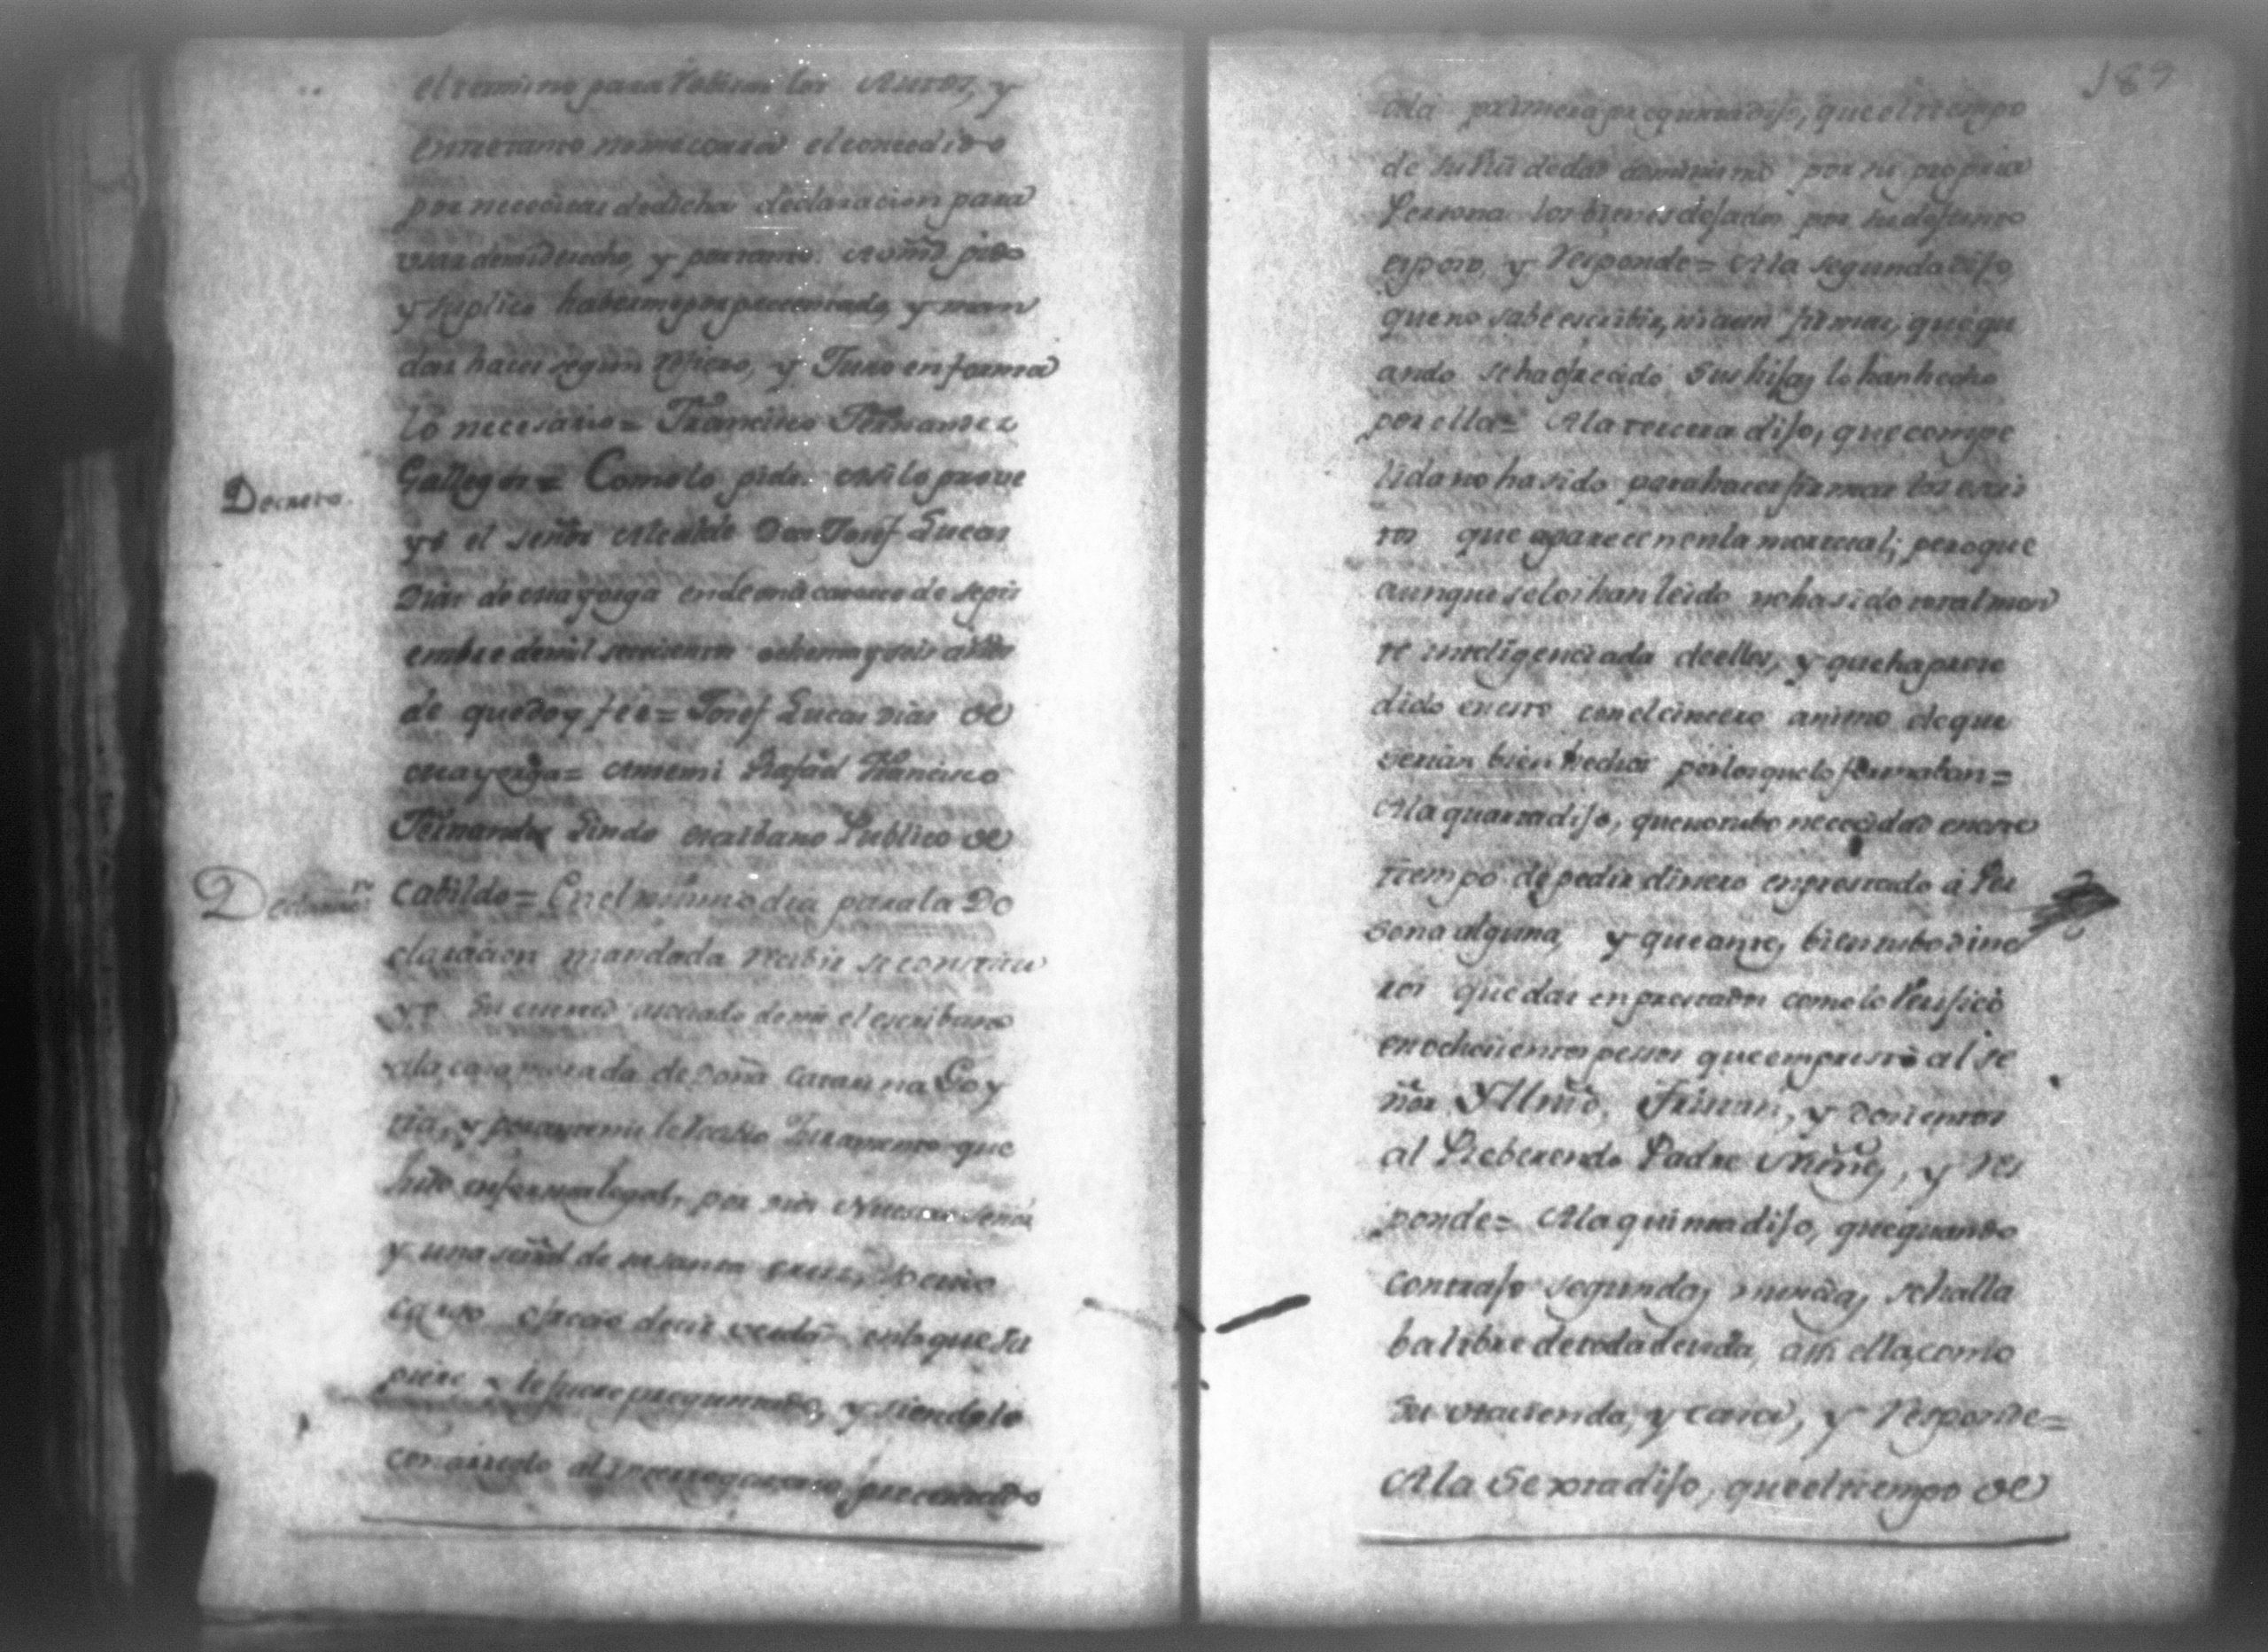 el termino para bolber los Autos, y
entretanto no me corra el concedido
por necesitar de dicha declaracion para
usar de mi derecho, y por tanto. A Vmd pido
y suplico haberme por presentado, y man
dar hacer segun refiero, y Juro en forma
lo necesario = Francisco Fernandez
Decreto.
Gallegos = Como lo pide. Asi lo prove
yó el señor Alcalde Don Josef Lucas
Dias de Mayorga en de septi
embre de mil setecientos ochenta y seis años
de que doy feé = Josef Lucas Dias de
Mayorga = Ante mi Rafael Francisco
Fernandez Lindo escribano Publico de
Declaracion.
Cabildo = En el mismo dia para la De
claracion mandada recibir se constitu
yó Su merced asociado de mi el escribano
a la casa morada de Doña Catarina Goy
tia, y por ante mi le recibio Juramento que
hizo en forma legal, por Dios Nuestro Señor
y una señal de su santa cruz, so cuio
cargo ofrecio decir verdad en lo que su
piere y le fuere preguntado, y siendolo
con arreglo al interrogatorio presentado
189
A la primera pregunta dijo, que el tiempo
de su viu dedad administró por su propria
Persona los bienes dejados por su defunto
esposo, y responde = A la segunda dijo,
que no sabe escribir, ni aun firmar, que qu
ando se ha ofrecido sus hijas lo han hecho
por ella = A la tercera dijo, que compe
lida no ha sido para hacer firmar los escri
tos que aparecen en la mortual; pero que
aunque se los han leido no ha sido totalmen
te inteligenciada de ellos, y que ha proce
dido en esto con el cincero animo de que
serian bien hechos por los que lo formaban =
A la quarta dijo, que no tubo necesidad en este
tiempo de pedir dinero enprestado á Per
sona alguna, y que antes bien tubo dine
ros que dar enprestados como lo verificó
en ochocientos pesos que emprestó al Se
ñor Yllmô. Tristan, y docientos
al Reberendo Padre Nuñes, y res
ponde = A la quinta dijo, que quando
contrajo segundas nuncias se halla
ba libre de toda deuda, asi ella, como
su Hacienda, y casa, y responde =
A la Sexta dijo, que el tiempo de